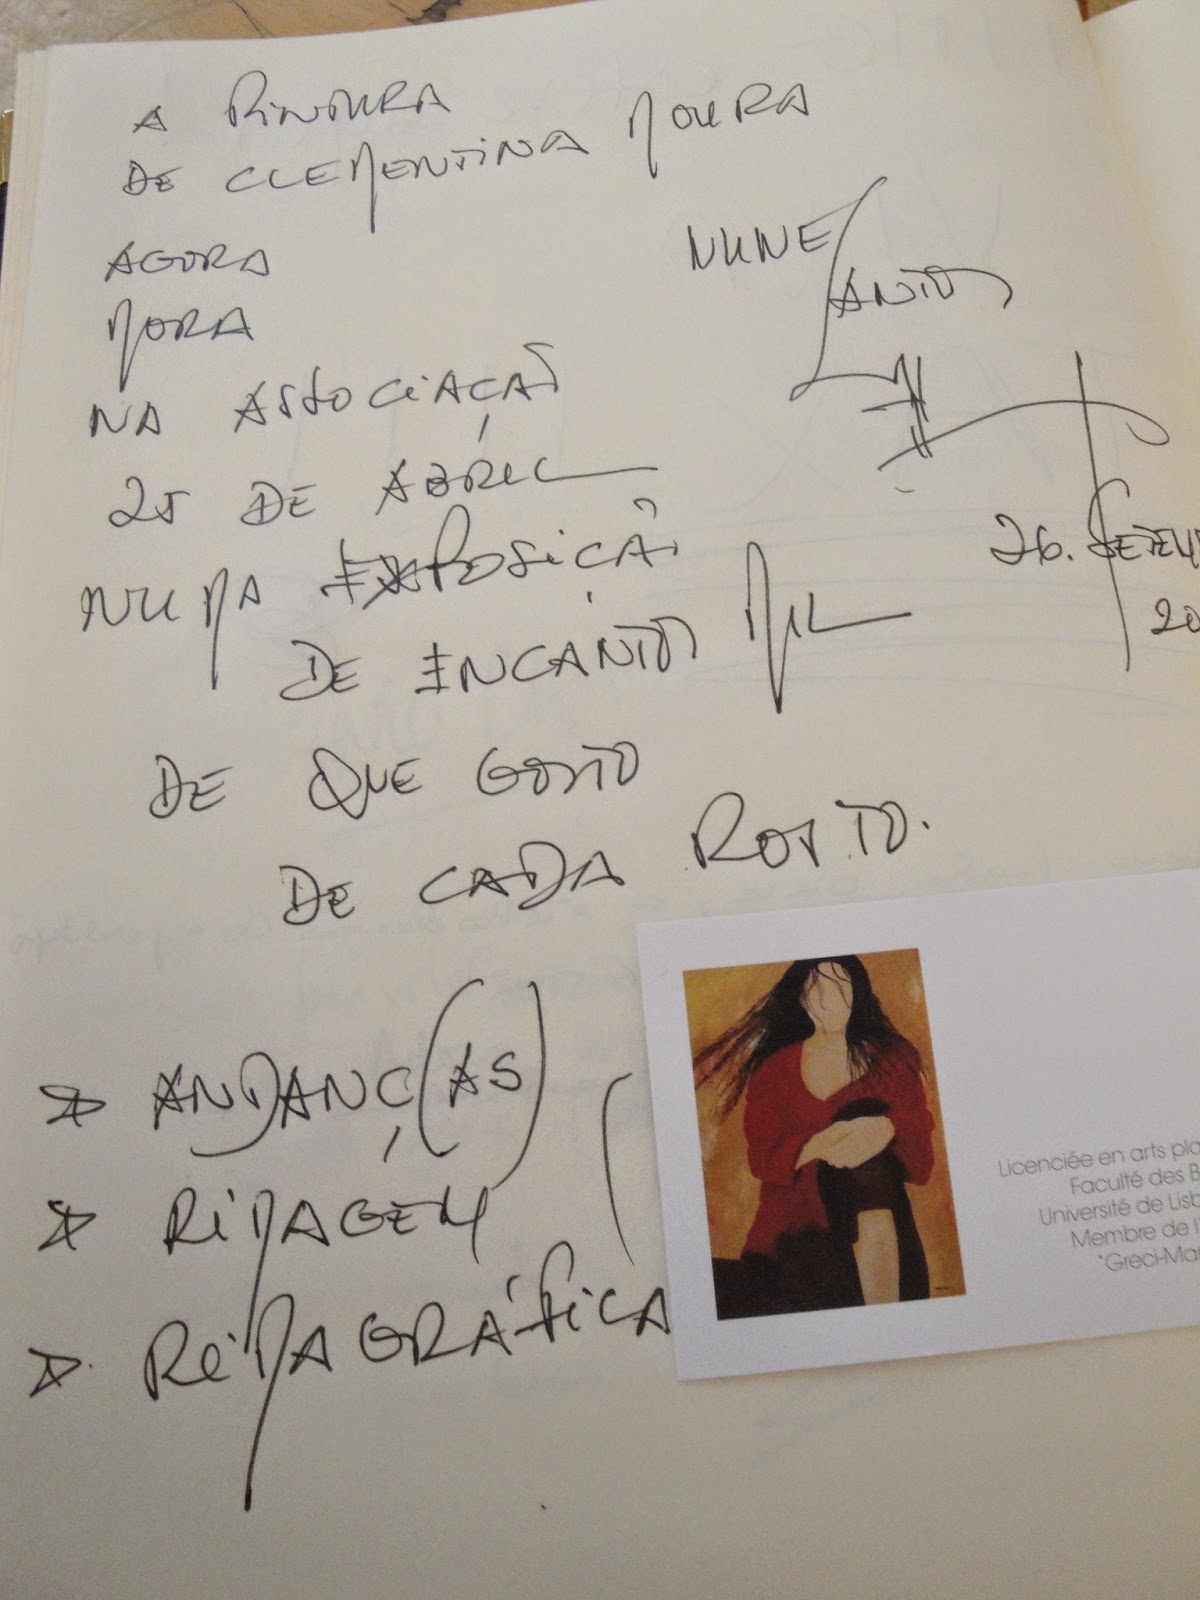 A PINTURA
DE CLEMENTINA MOURA
AGORA
MORA
NA ASSOCIAÇÃO
25 DE ABRIL
NUMA EXPOSIÇÃO
DE ENCANTOS MIL
DE QUE GOSTO
DE CADA ROSTO.
NUNE SANTOS
26. SETEM
20
ANDANÇ(AS)
RIMAGEM
RIMAGRÁFICA
Licenciée en arts pla
Faculté des B
Université de Lisb
Membre de l'
"Greci-Mar